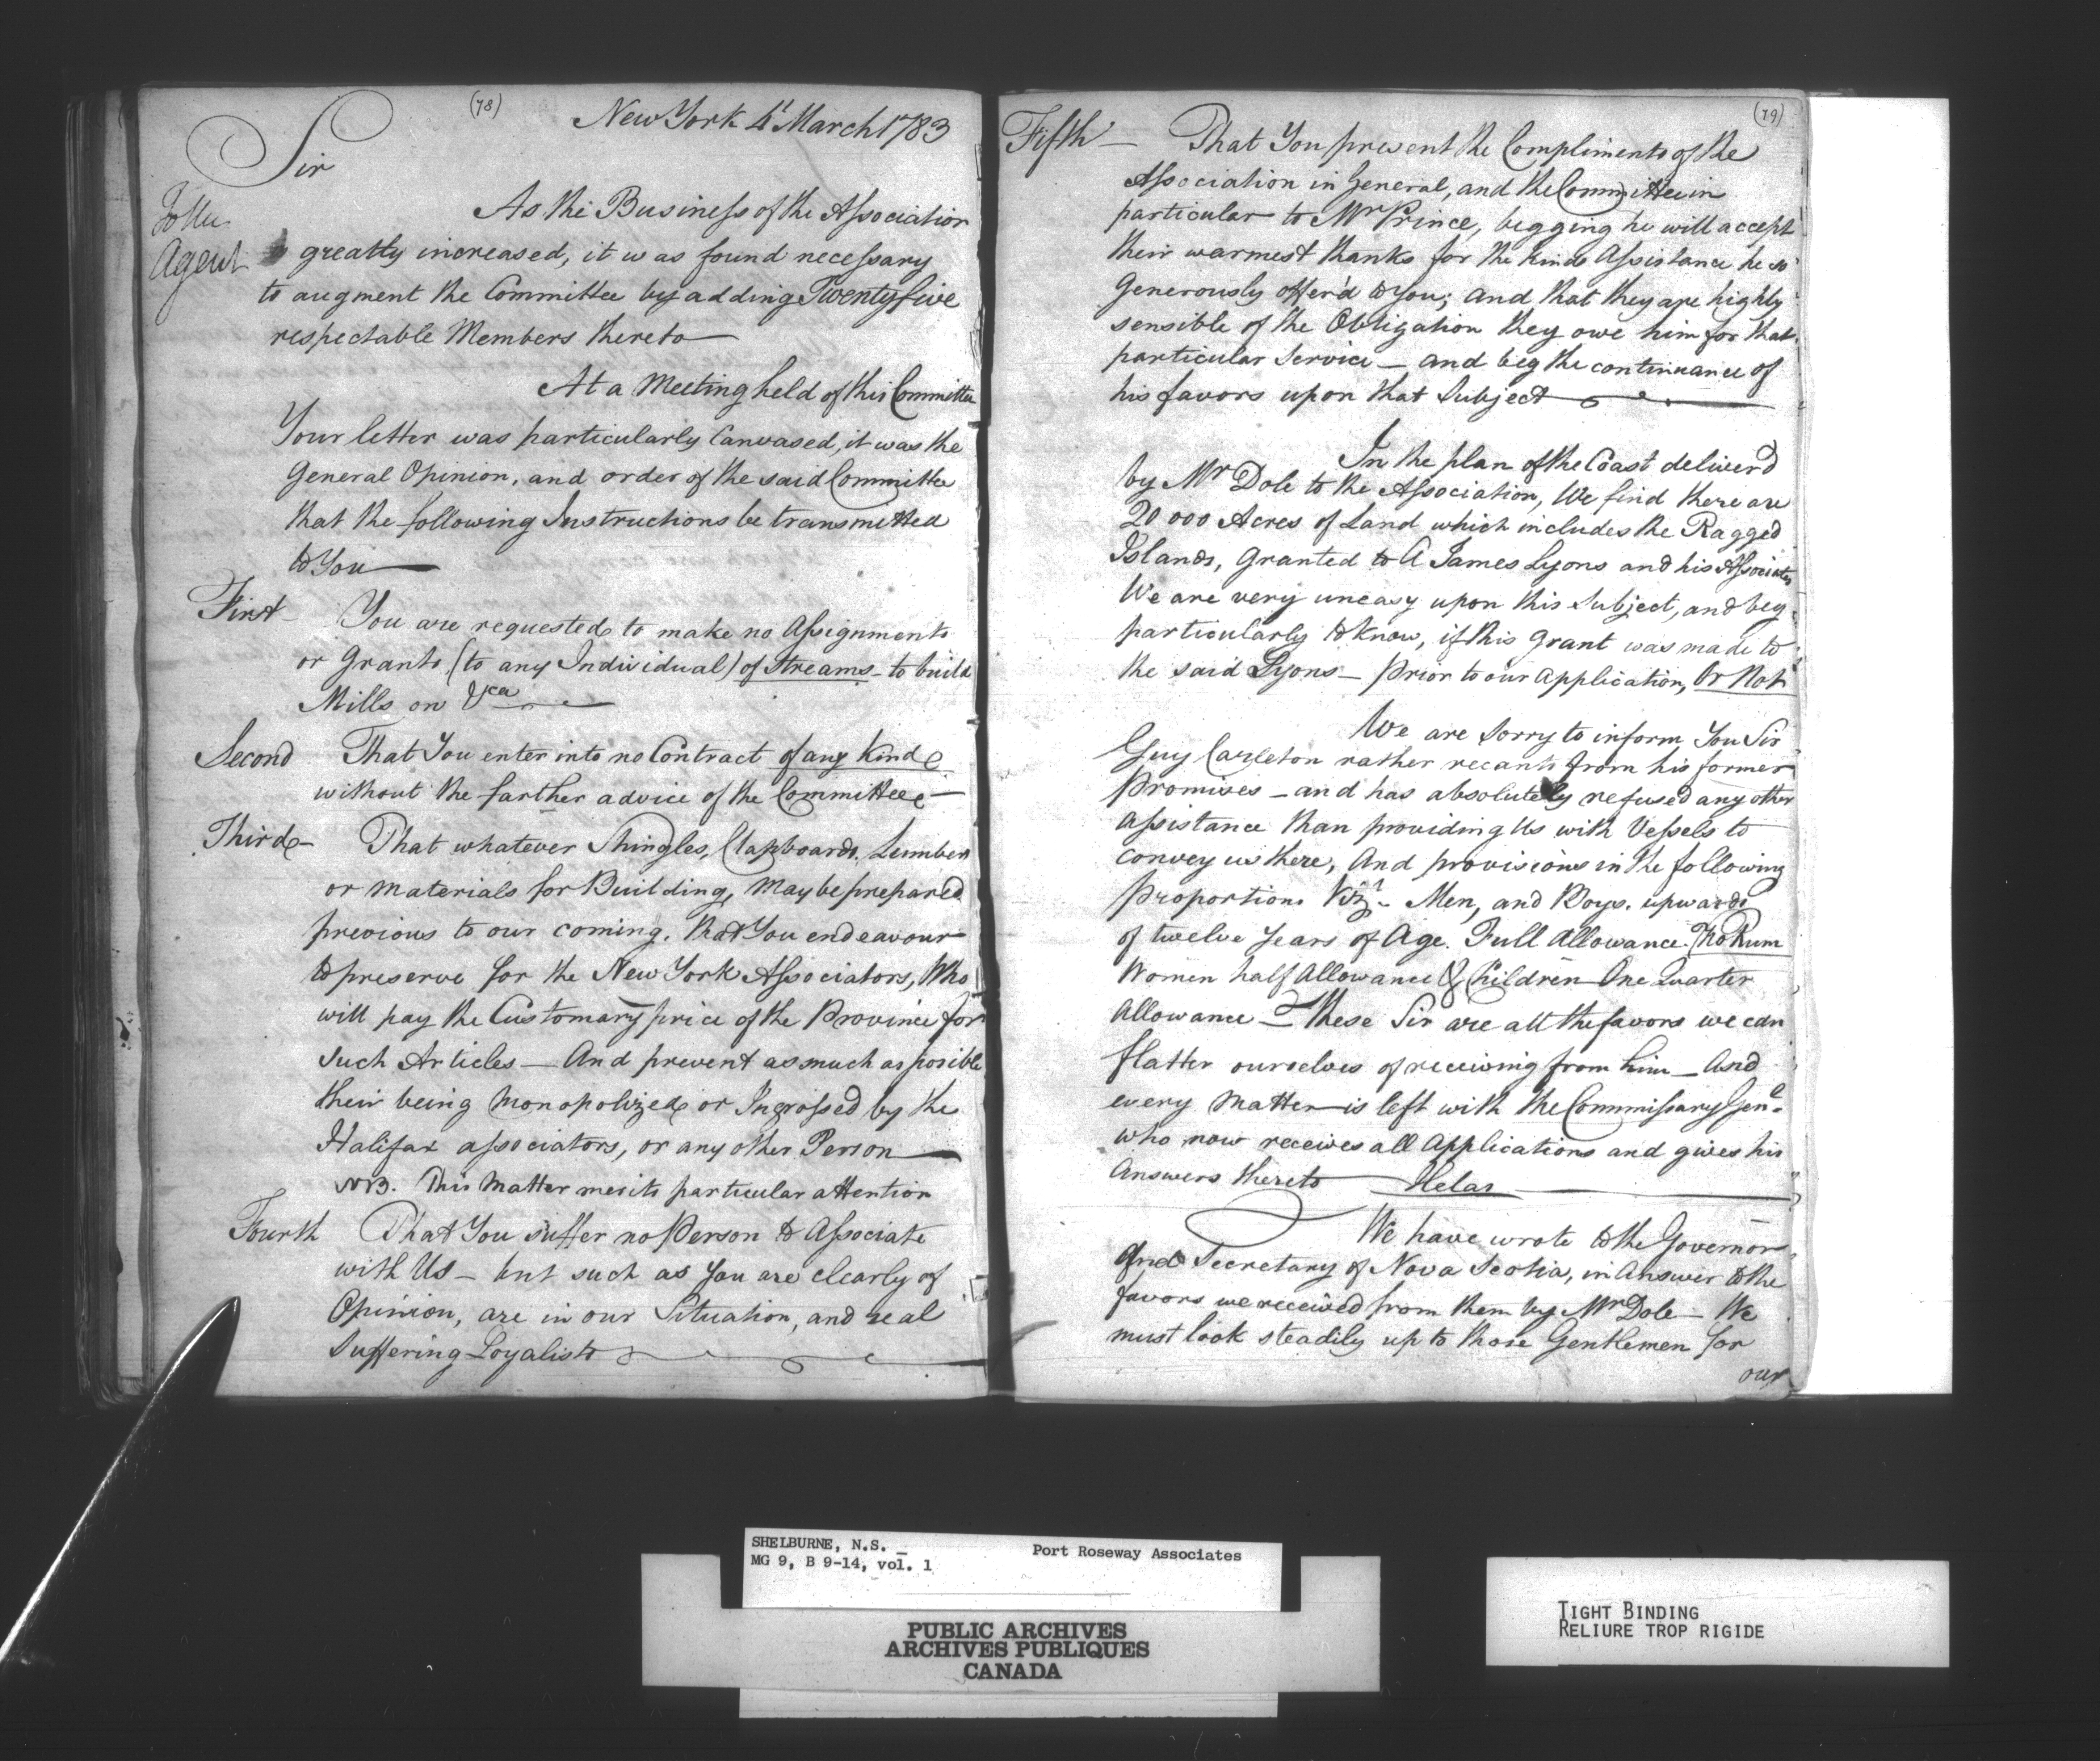 (78)
New York 4t March 1783
Sir
To the
Agent
As the Business of the Association
is greatly increased, it was found necessary
to augment the Committee by adding Twenty five
respectable Members thereto
At a Meeting held of this Committee
Your letter was particularly Canvased, it was the
General Opinion, and order of the said Committee
that the following Instructions be transmitted
to You
First - You are requested to make no Assignments
or Grants, (to any Individual) of Streams - to build
Mills on &ca
Second That You enter into no Contract of any Kind
without the farther advice of the Committee -
Third - That whatever Shingles, Clapboards, Lumber
or materials for Building, may be prepared
previous to our coming, that You endeavour
to preserve for the New York Associators, Who
will pay the Customary price of the Province for
such Articles - And prevent as much as posible
their being Monopolized or Ingrossed by the
Halifax associators, or any other Person
NB. This Matter merits particular attention
Fourth That You suffer no Person to Associate
with Us - but such as You are clearly of
Opinion, are in our Situation, and real
Suffering Loyalists
(79)
Fifth - That You present the Compliments of the
Association in General, and the Committee in
particular to Mr Prince, begging he will accept
their warmest thanks for the kind Assistance he so
Generously offer'd to You; and that they are highly
sensible of the Obligation they owe him for that
particular Service - and beg the continuance of
his favors upon that Subject
In the plan of the Coast deliver'd
by Mr Dole to the Association, We find there are
20 000 Acres of Land which includes the Ragged
Islands, Granted to A James Lyons and his Associates
We are very uneasy upon this Subject, and beg
particularly to know, if this Grant was made to
the said Lyons - prior to our application, Or Not
We are sorry to inform You Sir
Guy Carleton rather recants from his former
Promises - and has absolutely refused any other
assistance than providing Us with Vessels to
convey us there, And provisions in the following
Proportions Vizt - Men, and Boys, upwards
of twelve Years of Age. Full Allowance. No Rum
Women half Allowance & Children One Quarter
Allowance - These Sir are all the favors we can
flatter ourselves of receiving from him - and
every matter is left with the Commissary Genl
who now receives all Applications and gives his
Answers thereto Helas
We have wrote to the Governor
And Secretary of Nova Scotia, in Answer to the
favors we received from them by Mr Dole - We
must look steadily up to those Gentlemen for
our
SHELBURNE, N.S. _ Port Roseway Associates
MG 9, B 9-14, vol. 1
PUBLIC ARCHIVES
ARCHIVES PUBLIQUES
CANADA
TIGHT BINDING
RELIURE TROP RIGIDE